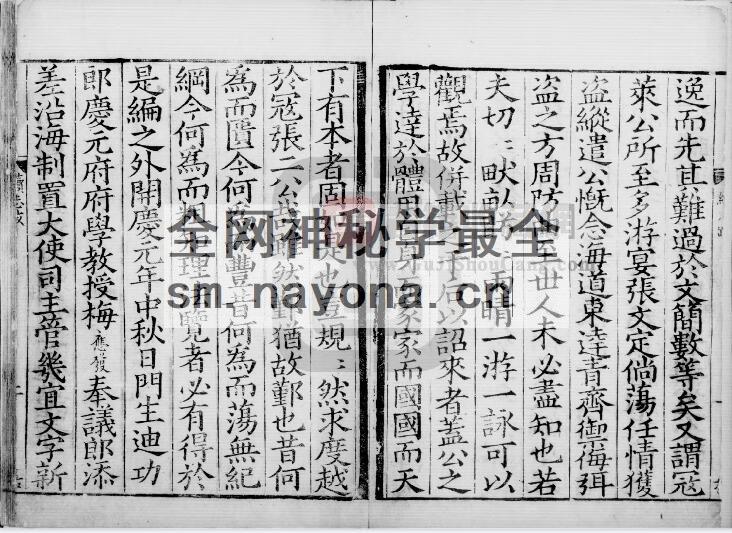 逸而先其難過於文簡數等矣又謂冦
萊公所至多游宴張文定倘蕩任情獲
盗縱遣公慨念海道東達青齊御侮弭
盗之方周防
世人未必盡知也若
夫切
雨晴一游一詠可以
觀焉故併載
后以詔來者蓋公之
學達於體用
家而國國而天
下有本者固
是也豈規〻然求度越
於冦張二公
雖然鄞猶故鄞也昔何
為而匱今何
豐昔何為而蕩無紀
綱今何為而
理
覽者必有得於
是編之外開慶元年中秋日門生迪功
郎慶元府府學教授梅應發奉議郎添
差沿海制置大使司主管幾宜文字新
全网神秘学最全
sm.nayona.cn